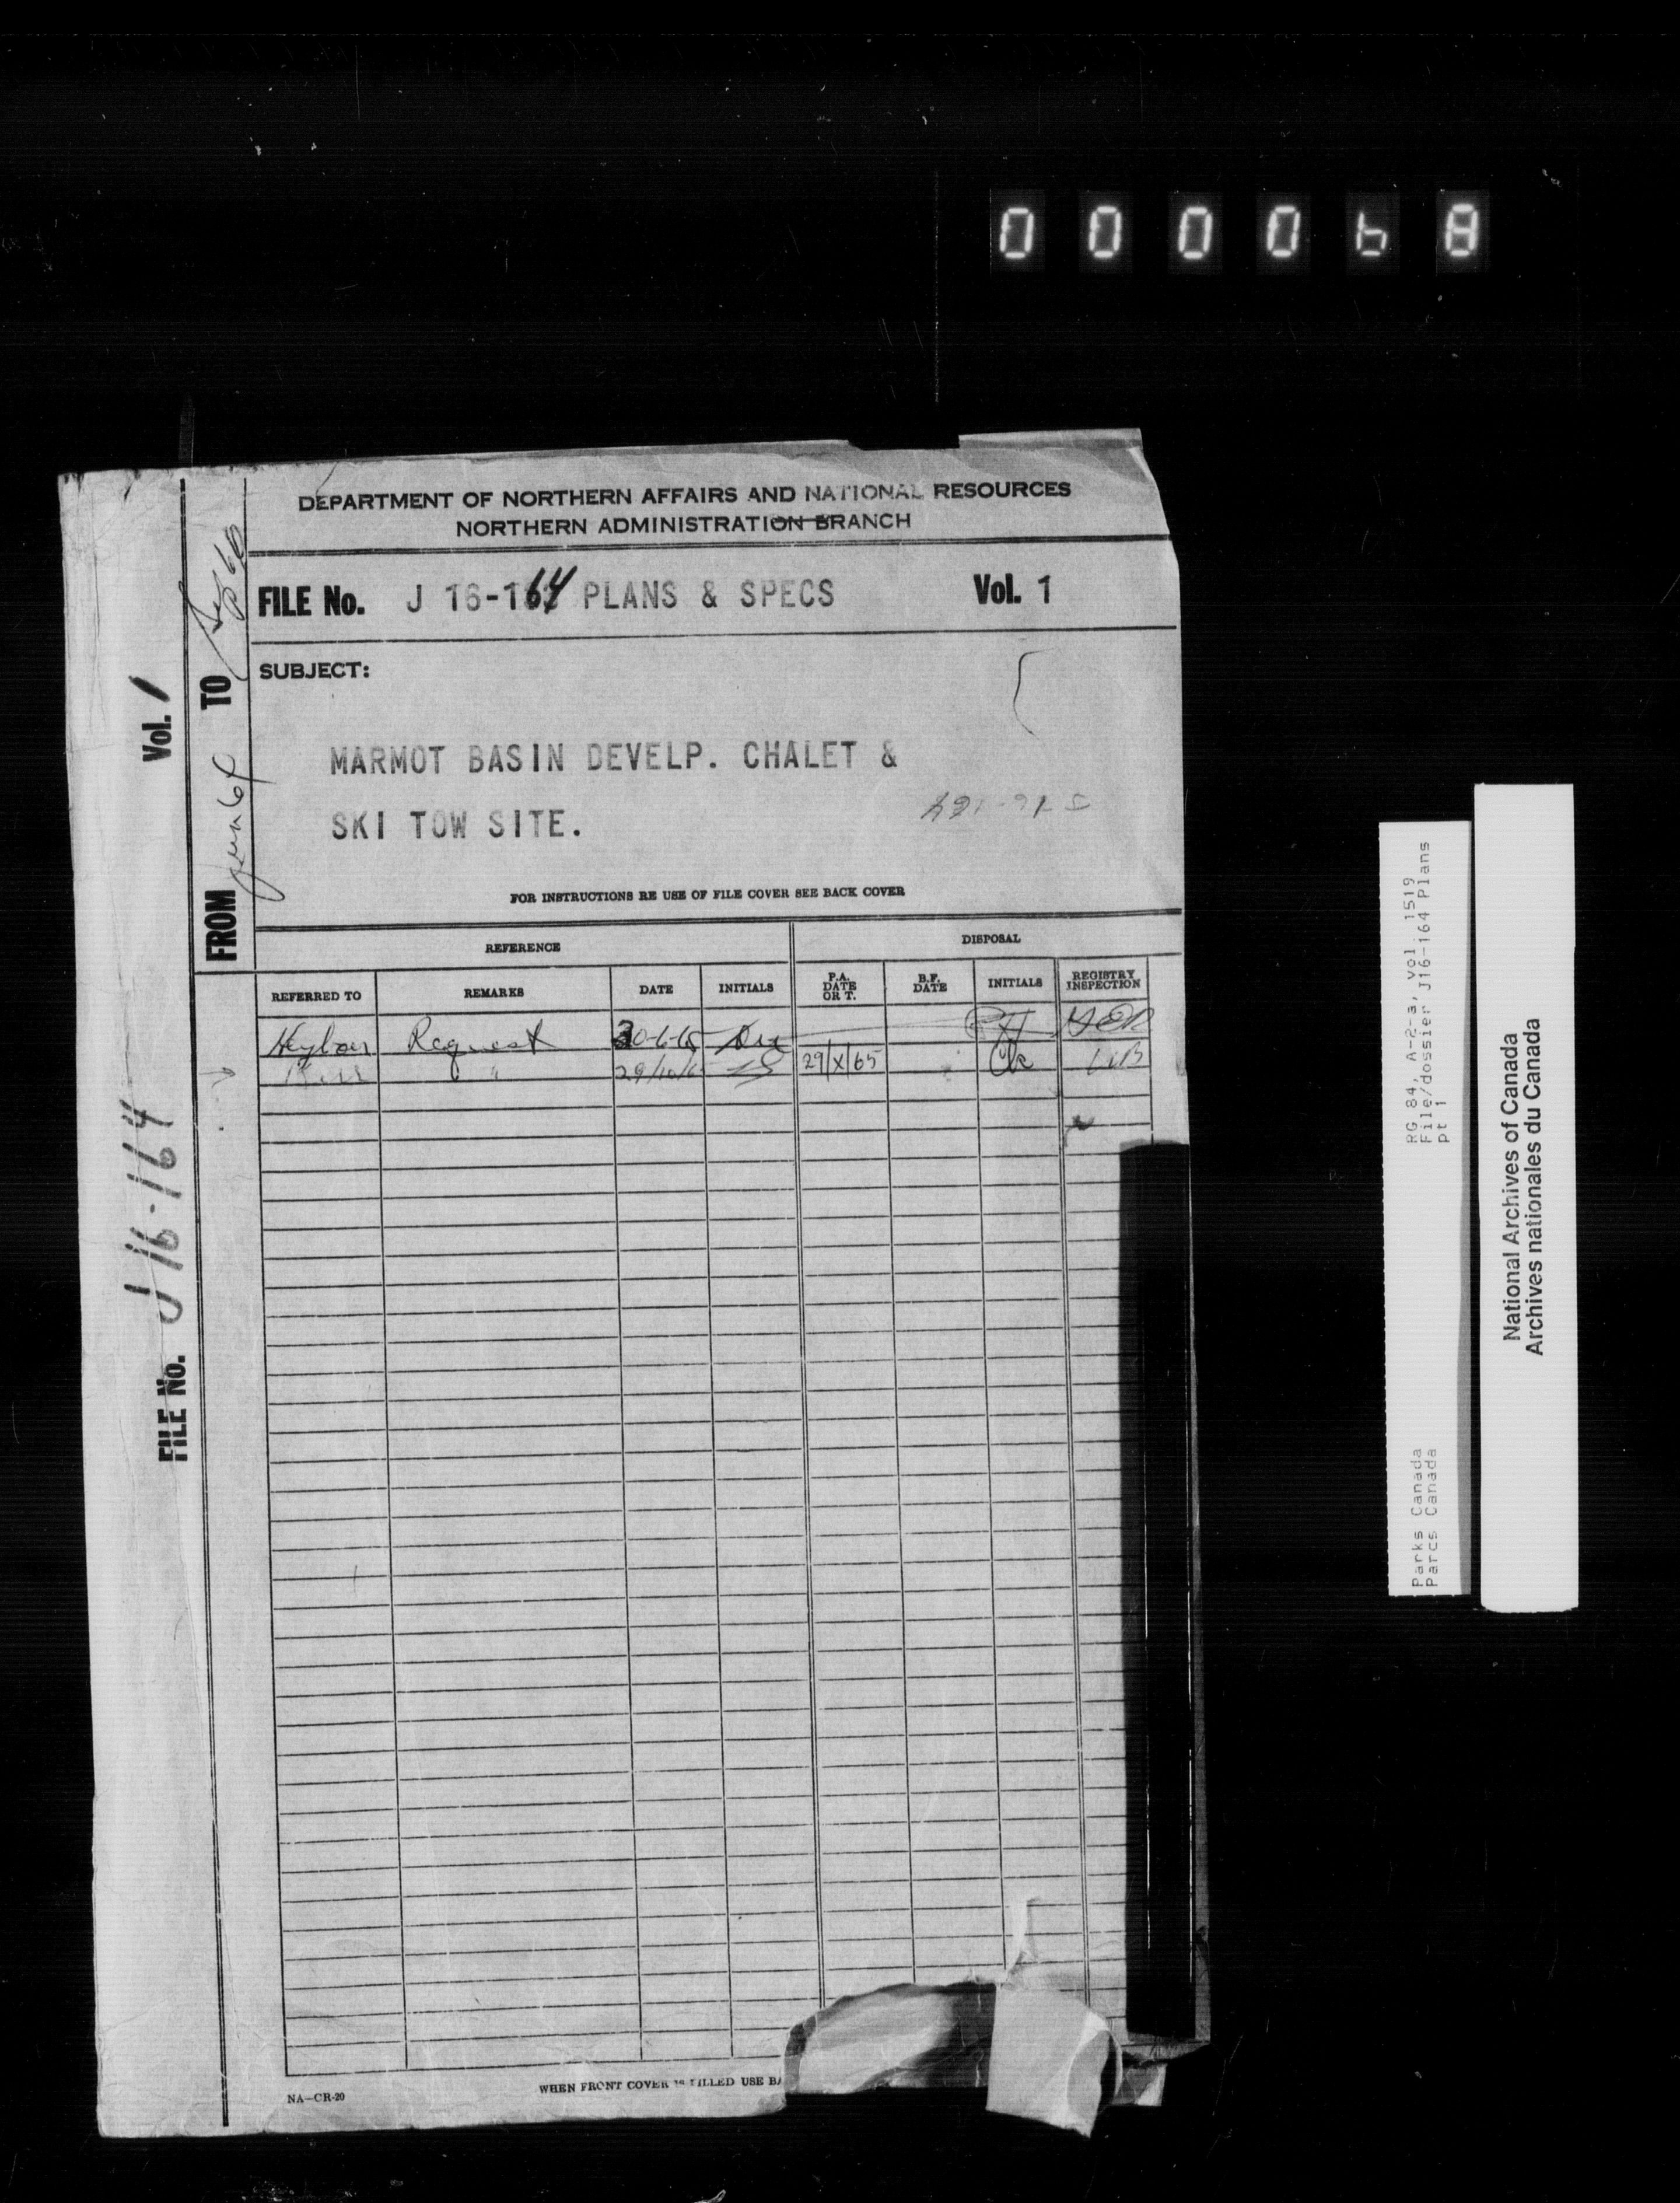 0 0 0 0 6 8
DEPARTMENT OF NORTHERN AFFAIRS AND NATIONAL RESOURCES
NORTHERN ADMINISTRATION BRANCH
FILE No. J 16-164 PLANS & SPECS Vol. 1
SUBJECT:
MARMOT BASIN DEVELP. CHALET &
SKI TOW SITE.
J 16-164
FOR INSTRUCTIONS RE USE OF FILE COVER SEE BACK COVER
REFERENCE DISPOSAL
REFERRED TO REMARKS DATE INITIALS P.A. DATE OR T. B.F. DATE INITIALS REGISTRY INSPECTION
Request 30-6-65
" 29/10/65 29/X/65
NA-CR-20 WHEN FRONT COVER IS FILLED USE BA
FILE No. J 16-164 Vol. 1
FROM TO
Parks Canada RG 84, A-2-a, vol. 1519
Parcs Canada File/dossier J16-164 Plans
pt 1
National Archives of Canada
Archives nationales du Canada